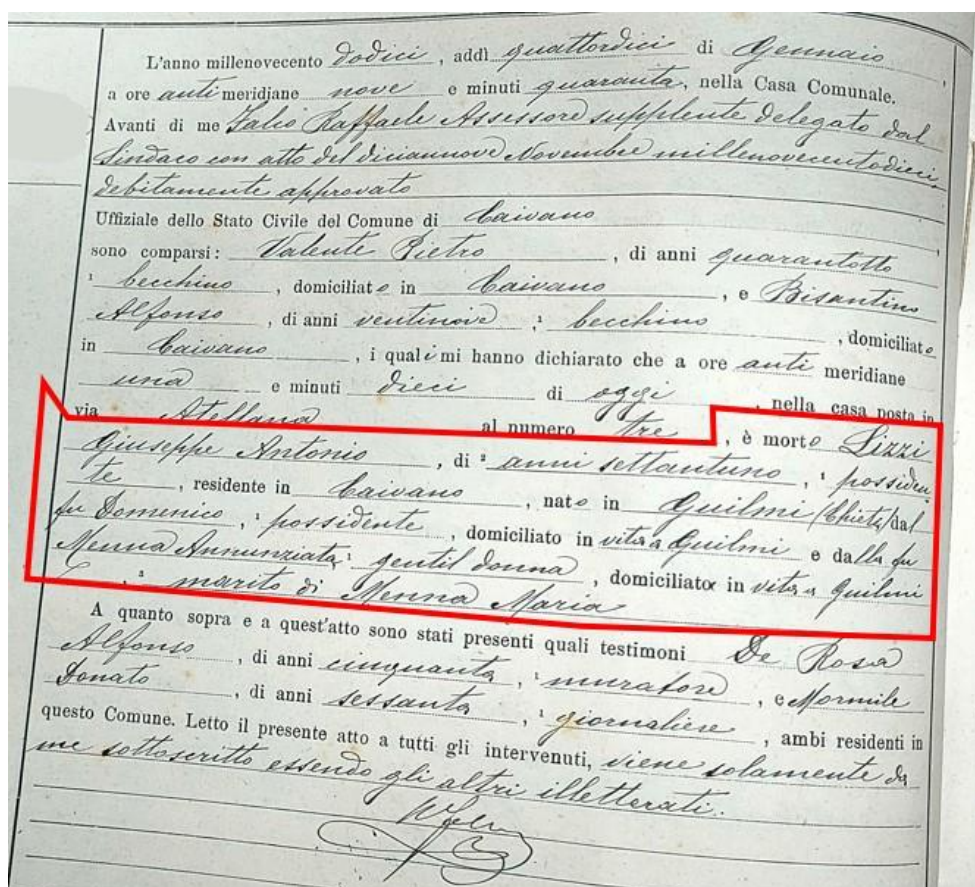 L'anno millenovecento dodici, addì quattordici di Gennaio,
a ore anti meridiane nove e minuti quaranta, nella Casa Comunale.
Avanti di me Falco Raffaele Assessore supplente delegato dal
Sindaco con atto del diciannove Novembre millenovecentodieci,
debitamente approvato
Uffiziale dello Stato Civile del Comune di Caivano
sono comparsi: Valente Pietro, di anni quarantotto
¹ becchino, domiciliato in Caivano, e Bisantino
Alfonso, di anni ventinove, ¹ becchino, domiciliato
in Caivano, i quali mi hanno dichiarato che a ore anti meridiane
una e minuti dieci di oggi, nella casa posta in
via Atellana al numero tre, è morto Lizzi
Giuseppe Antonio, di ² anni settantuno, ¹ possiden
te, residente in Caivano, nato in Guilmi (Chieti) dal
fu Domenico, ¹ possidente, domiciliato in vita a Guilmi e dalla fu
Menna Annunziata, ¹ gentil donna, domiciliata in vita a Guilmi
, ³ marito di Menna Maria
A quanto sopra e a quest'atto sono stati presenti quali testimoni De Rosa
Alfonso, di anni cinquanta, ¹ muratore, e Mormile
Donato, di anni sessanta, ¹ giornaliere, ambi residenti in
questo Comune. Letto il presente atto a tutti gli intervenuti, viene solamente da
me sottoscritto essendo gli altri illetterati.